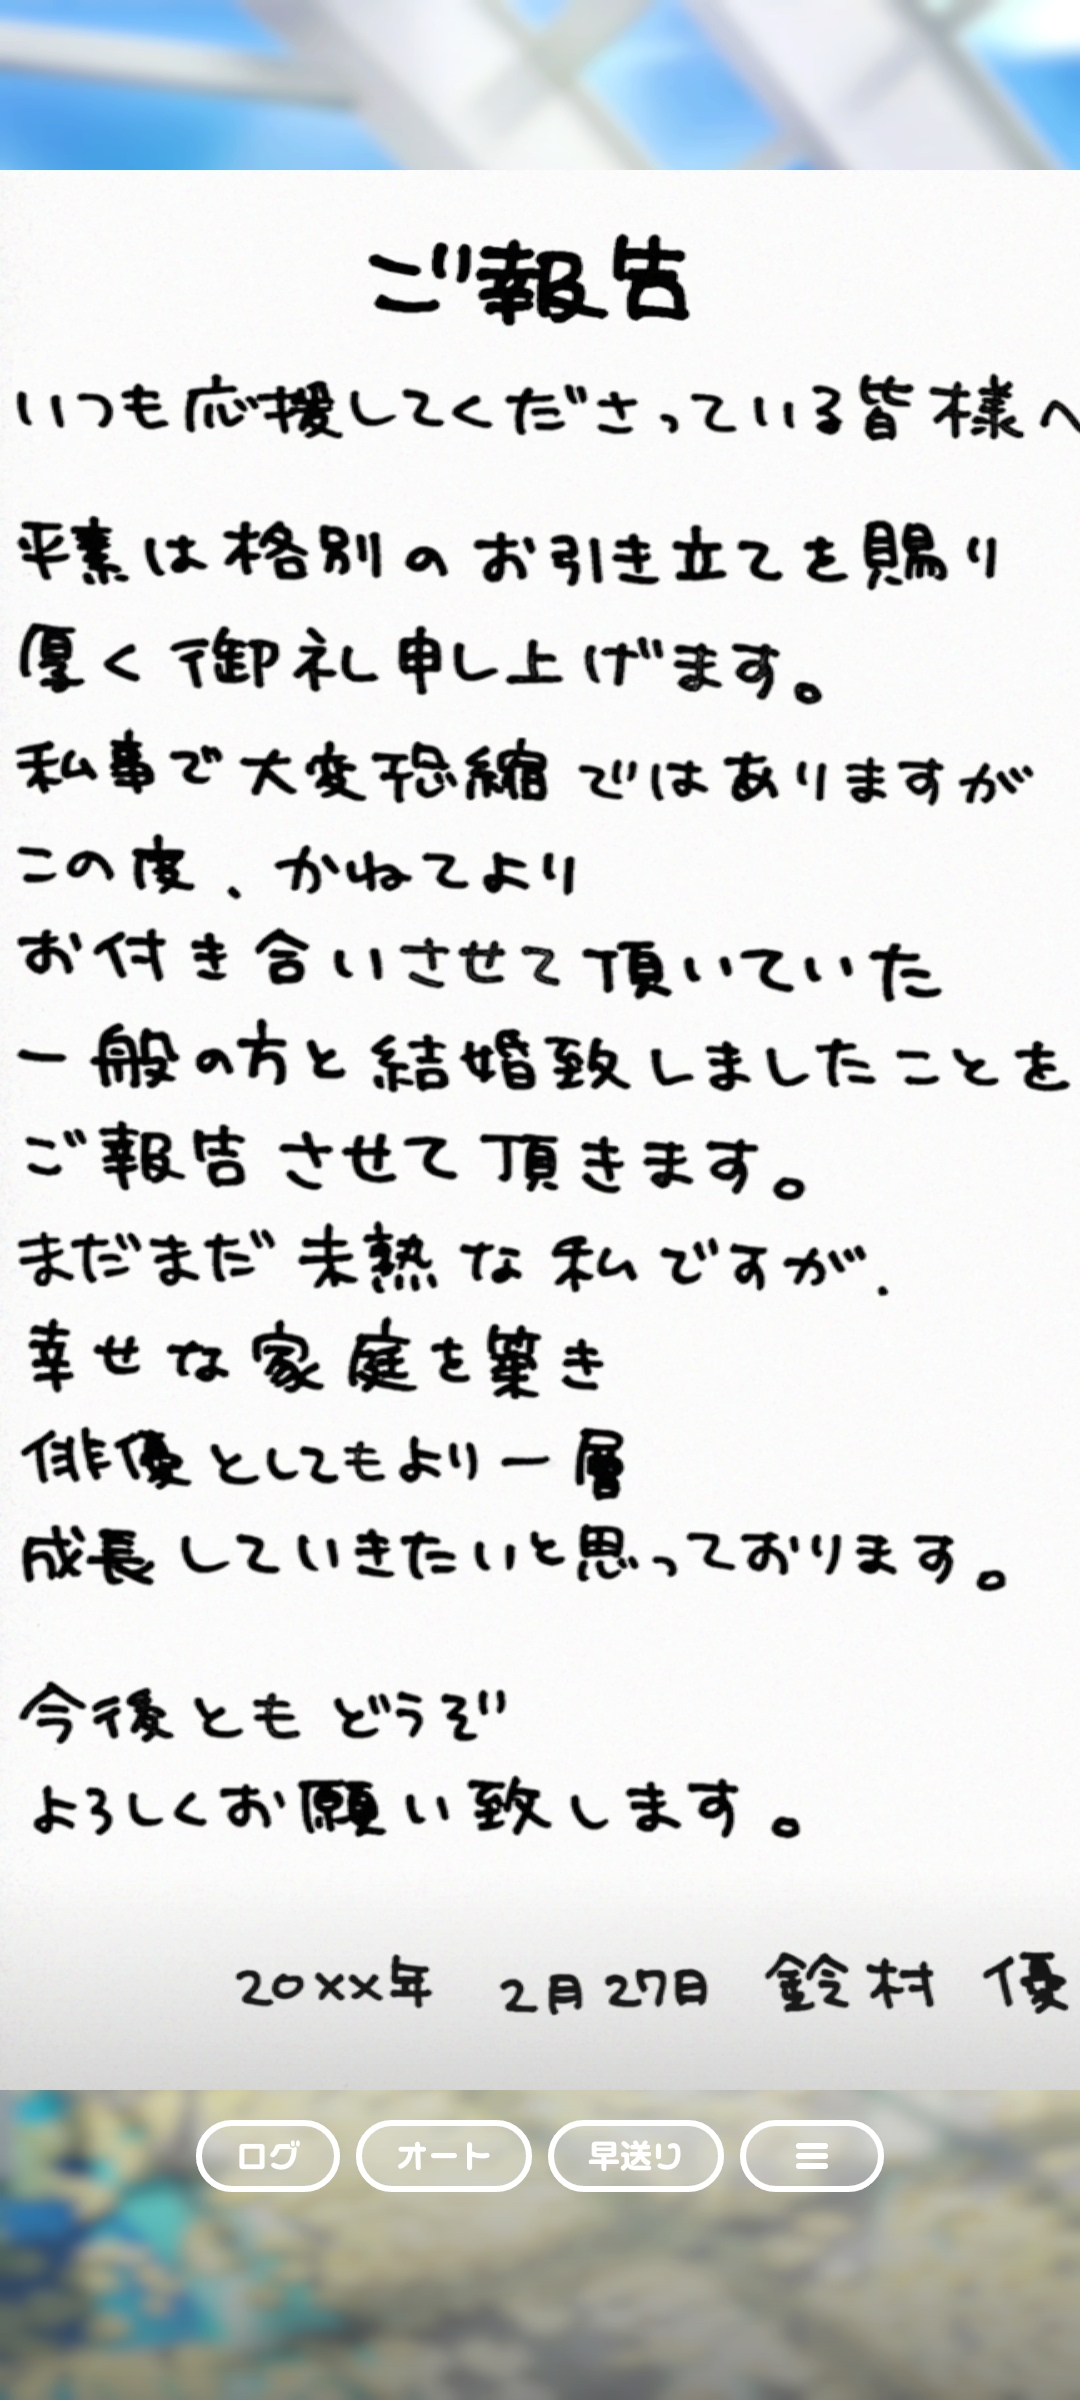 ご報告
いつも応援してくださっている皆様へ
平素は格別のお引き立てを賜り
厚く御礼申し上げます。
私事で大変恐縮ではありますが
この度、かねてより
お付き合いさせて頂いていた
一般の方と結婚致しましたことを
ご報告させて頂きます。
まだまだ未熟な私ですが、
幸せな家庭を築き
俳優としてもより一層
成長していきたいと思っております。
今後ともどうぞ
よろしくお願い致します。
20XX年 2月27日 鈴村 優
ログ オート 早送り